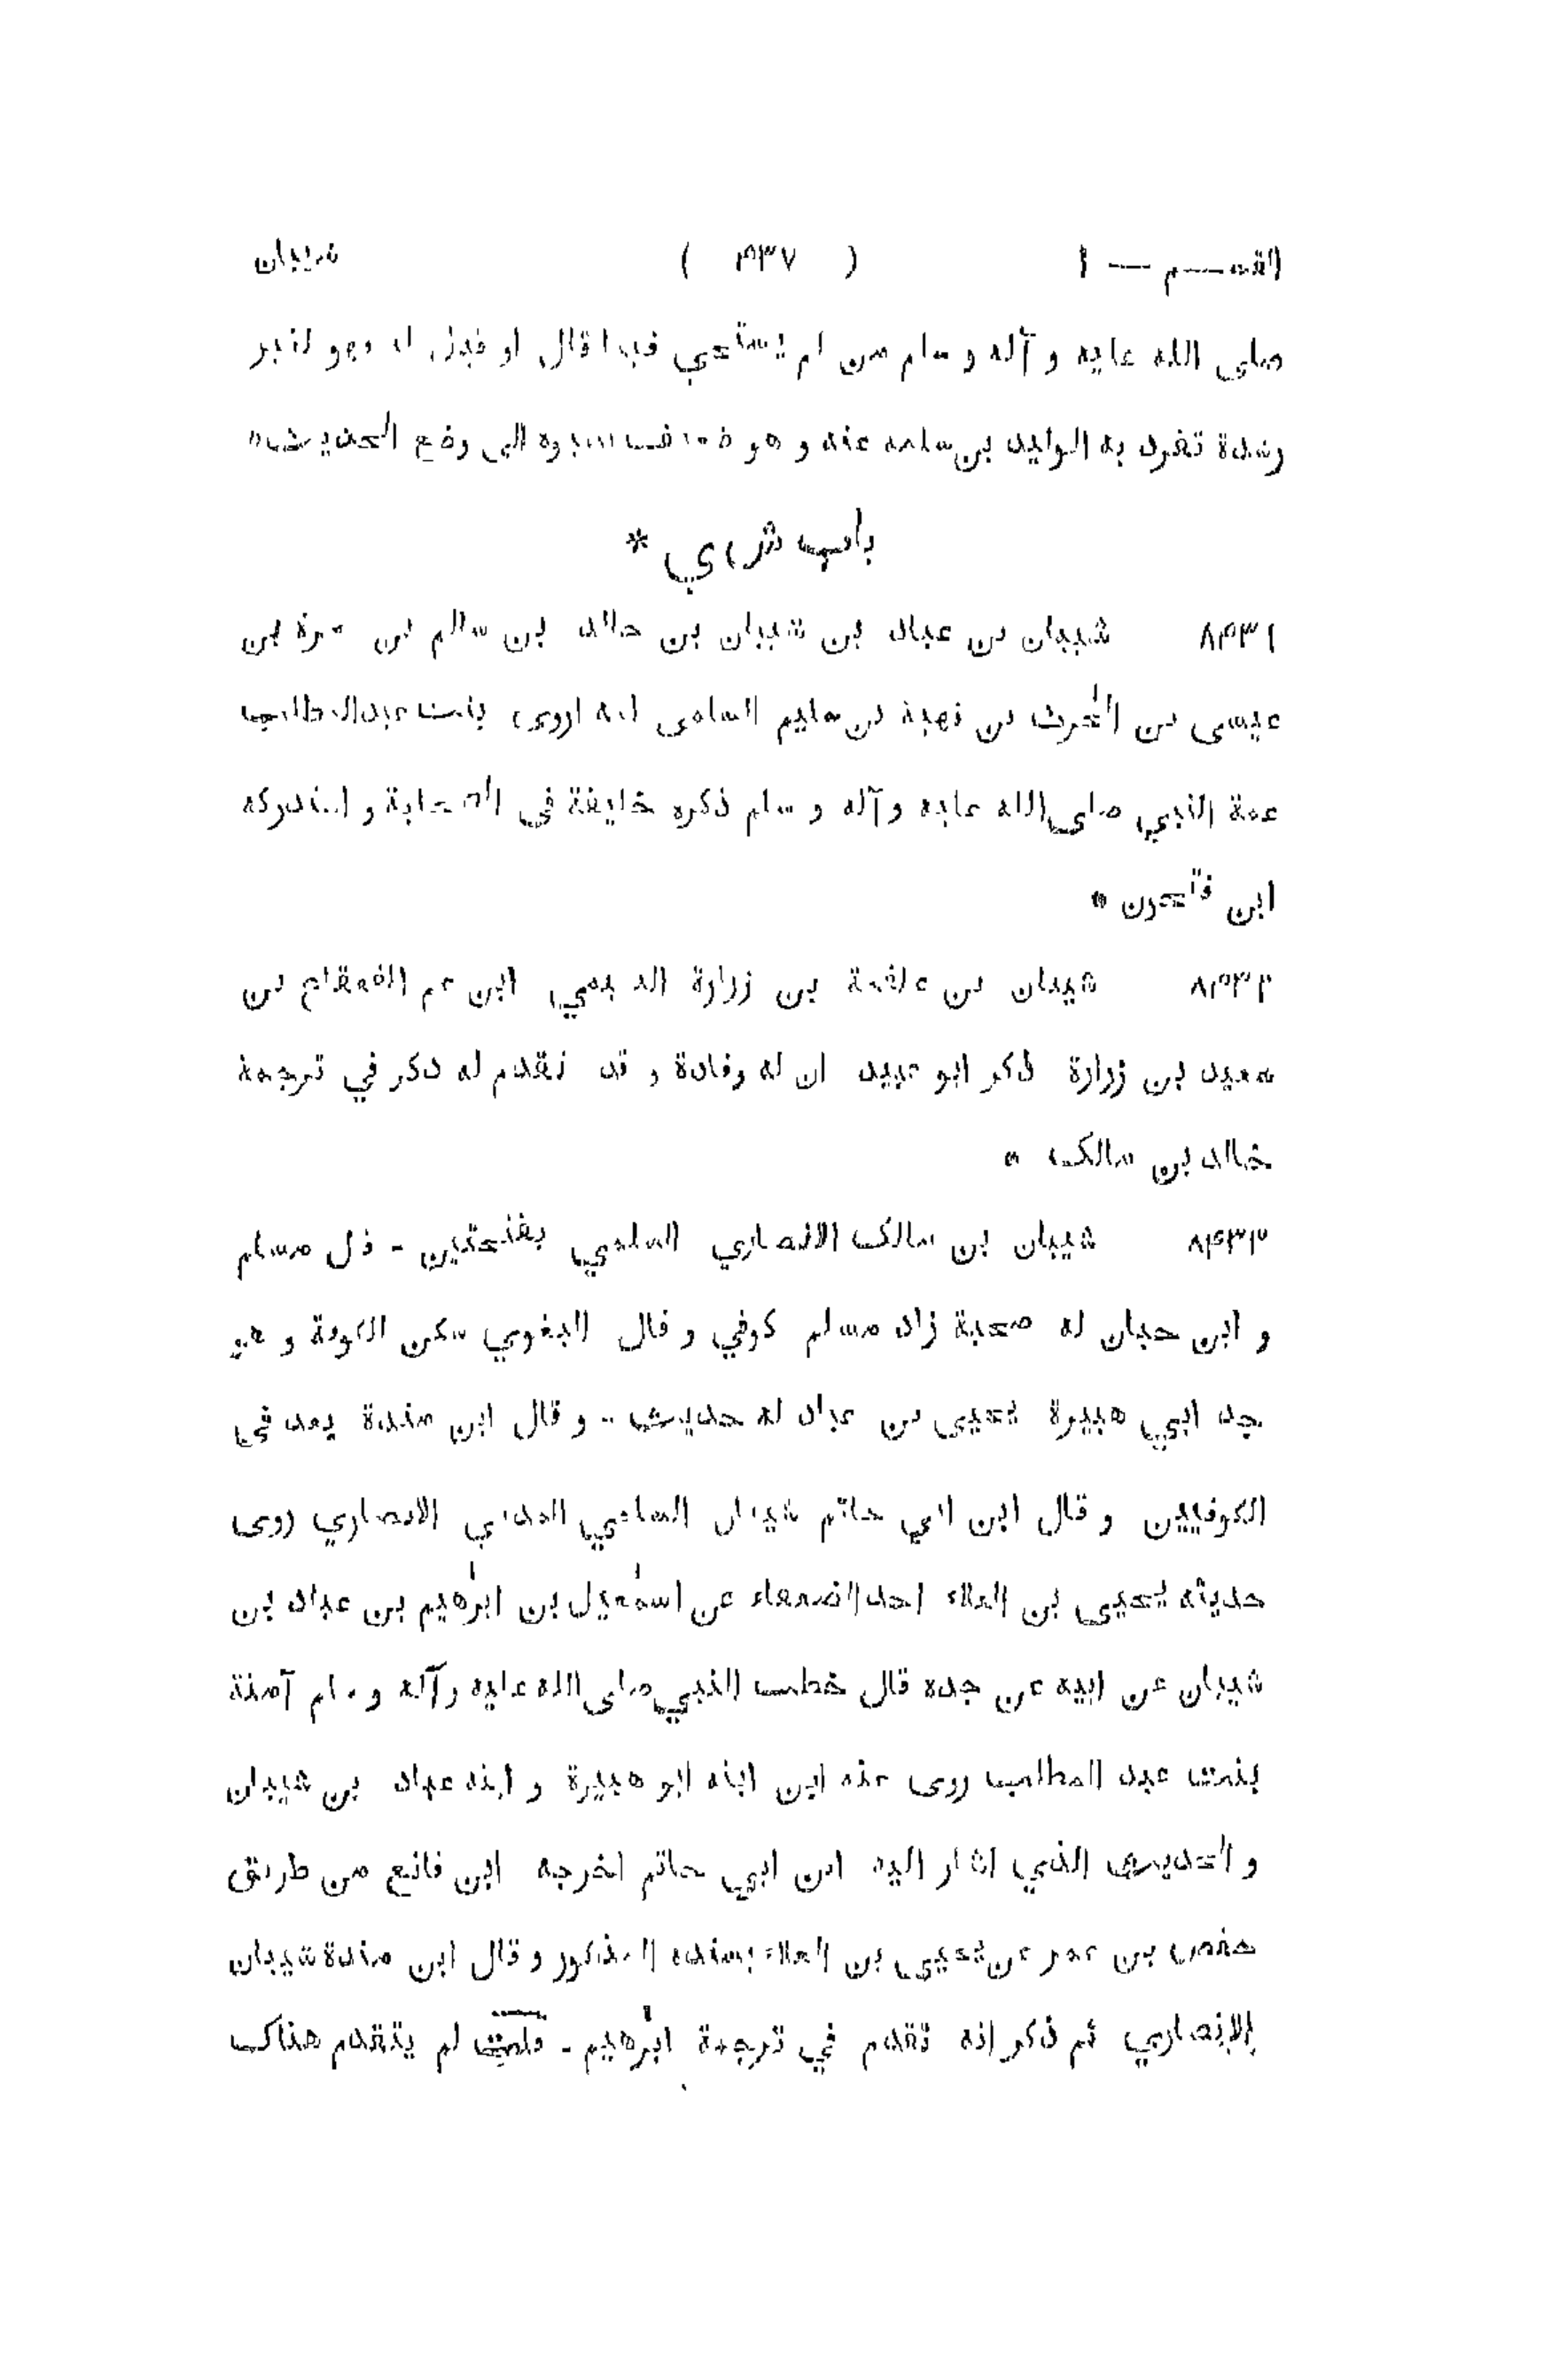 القسم — ١ ( ٤٣٧ ) شيبان
صلى الله عليه و آله و سلم من لم يستحي فيما قال او قيل له فهو لغير
رشدة تفرد به الوليد بن سلمه عنه و هو نسبوه الى وضع الحديث*
باب ش ي *
٨٤٣١ شيبان بن عباد بن شيبان بن خالد بن سالم بن مرة بن
عيسى بن الحرث بن نهية بن سليم السلمى امه اروى بنت عبدالمطلب
عمة النبي صلى الله عليه و آله و سلم ذكره خليفة في الصحابة و استدركه
ابن فتحون *
٨٤٣٢ شيبان بن علقمة بن زرارة التميمي ابن عم القعقاع بن
معبد بن زرارة ذكر ابو عبيد ان له وفادة و قد تقدم له ذكر في ترجمة
خالد بن مالك *
٨٤٣٣ شيبان بن مالك الانصاري السلمي بفتحتين - قال مسلم
و ابن حبان له صحبة زاد مسلم كوفي و قال البغوي سكن الكوفة و هو
جد ابي هبيرة يحيى بن عباد له حديث - و قال ابن مندة يعد في
الكوفيين و قال ابن ابي حاتم شيبان السلمي المدني الانصاري روى
حديثه يحيى بن العلاء احد الضعفاء عن اسمٰعيل بن ابرٰهيم بن عباد بن
شيبان عن ابيه عن جده قال خطب النبي صلى الله عليه وآله و سلم آمنة
بنت عبد المطلب روى عنه ابن ابنه ابو هبيرة و ابنه عباد بن شيبان
و الحديث الذي اشار اليه ابن ابي حاتم اخرجه ابن قانع من طريق
حفص بن عمر عن يحيى بن العلاء بسنده المذكور و قال ابن مندة شيبان
الانصاري ثم ذكر انه تقدم في ترجمة ابرٰهيم - قلت لم يتقدم هناك